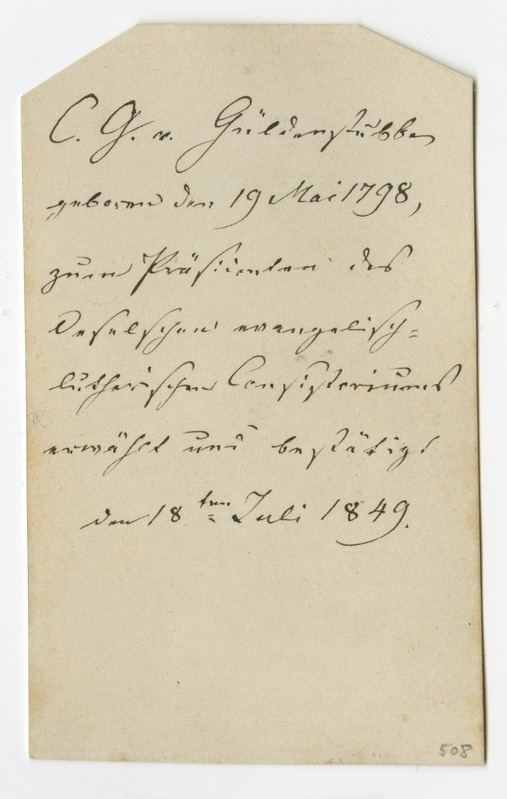 C. G. v. Güldenstubbe
geboren den 19 Mai 1798,
zum Präsidenten des
Oeselschen evangelisch-
lutherischen Consistoriums
erwählt und bestätigt
den 18ten Juli 1849.
508